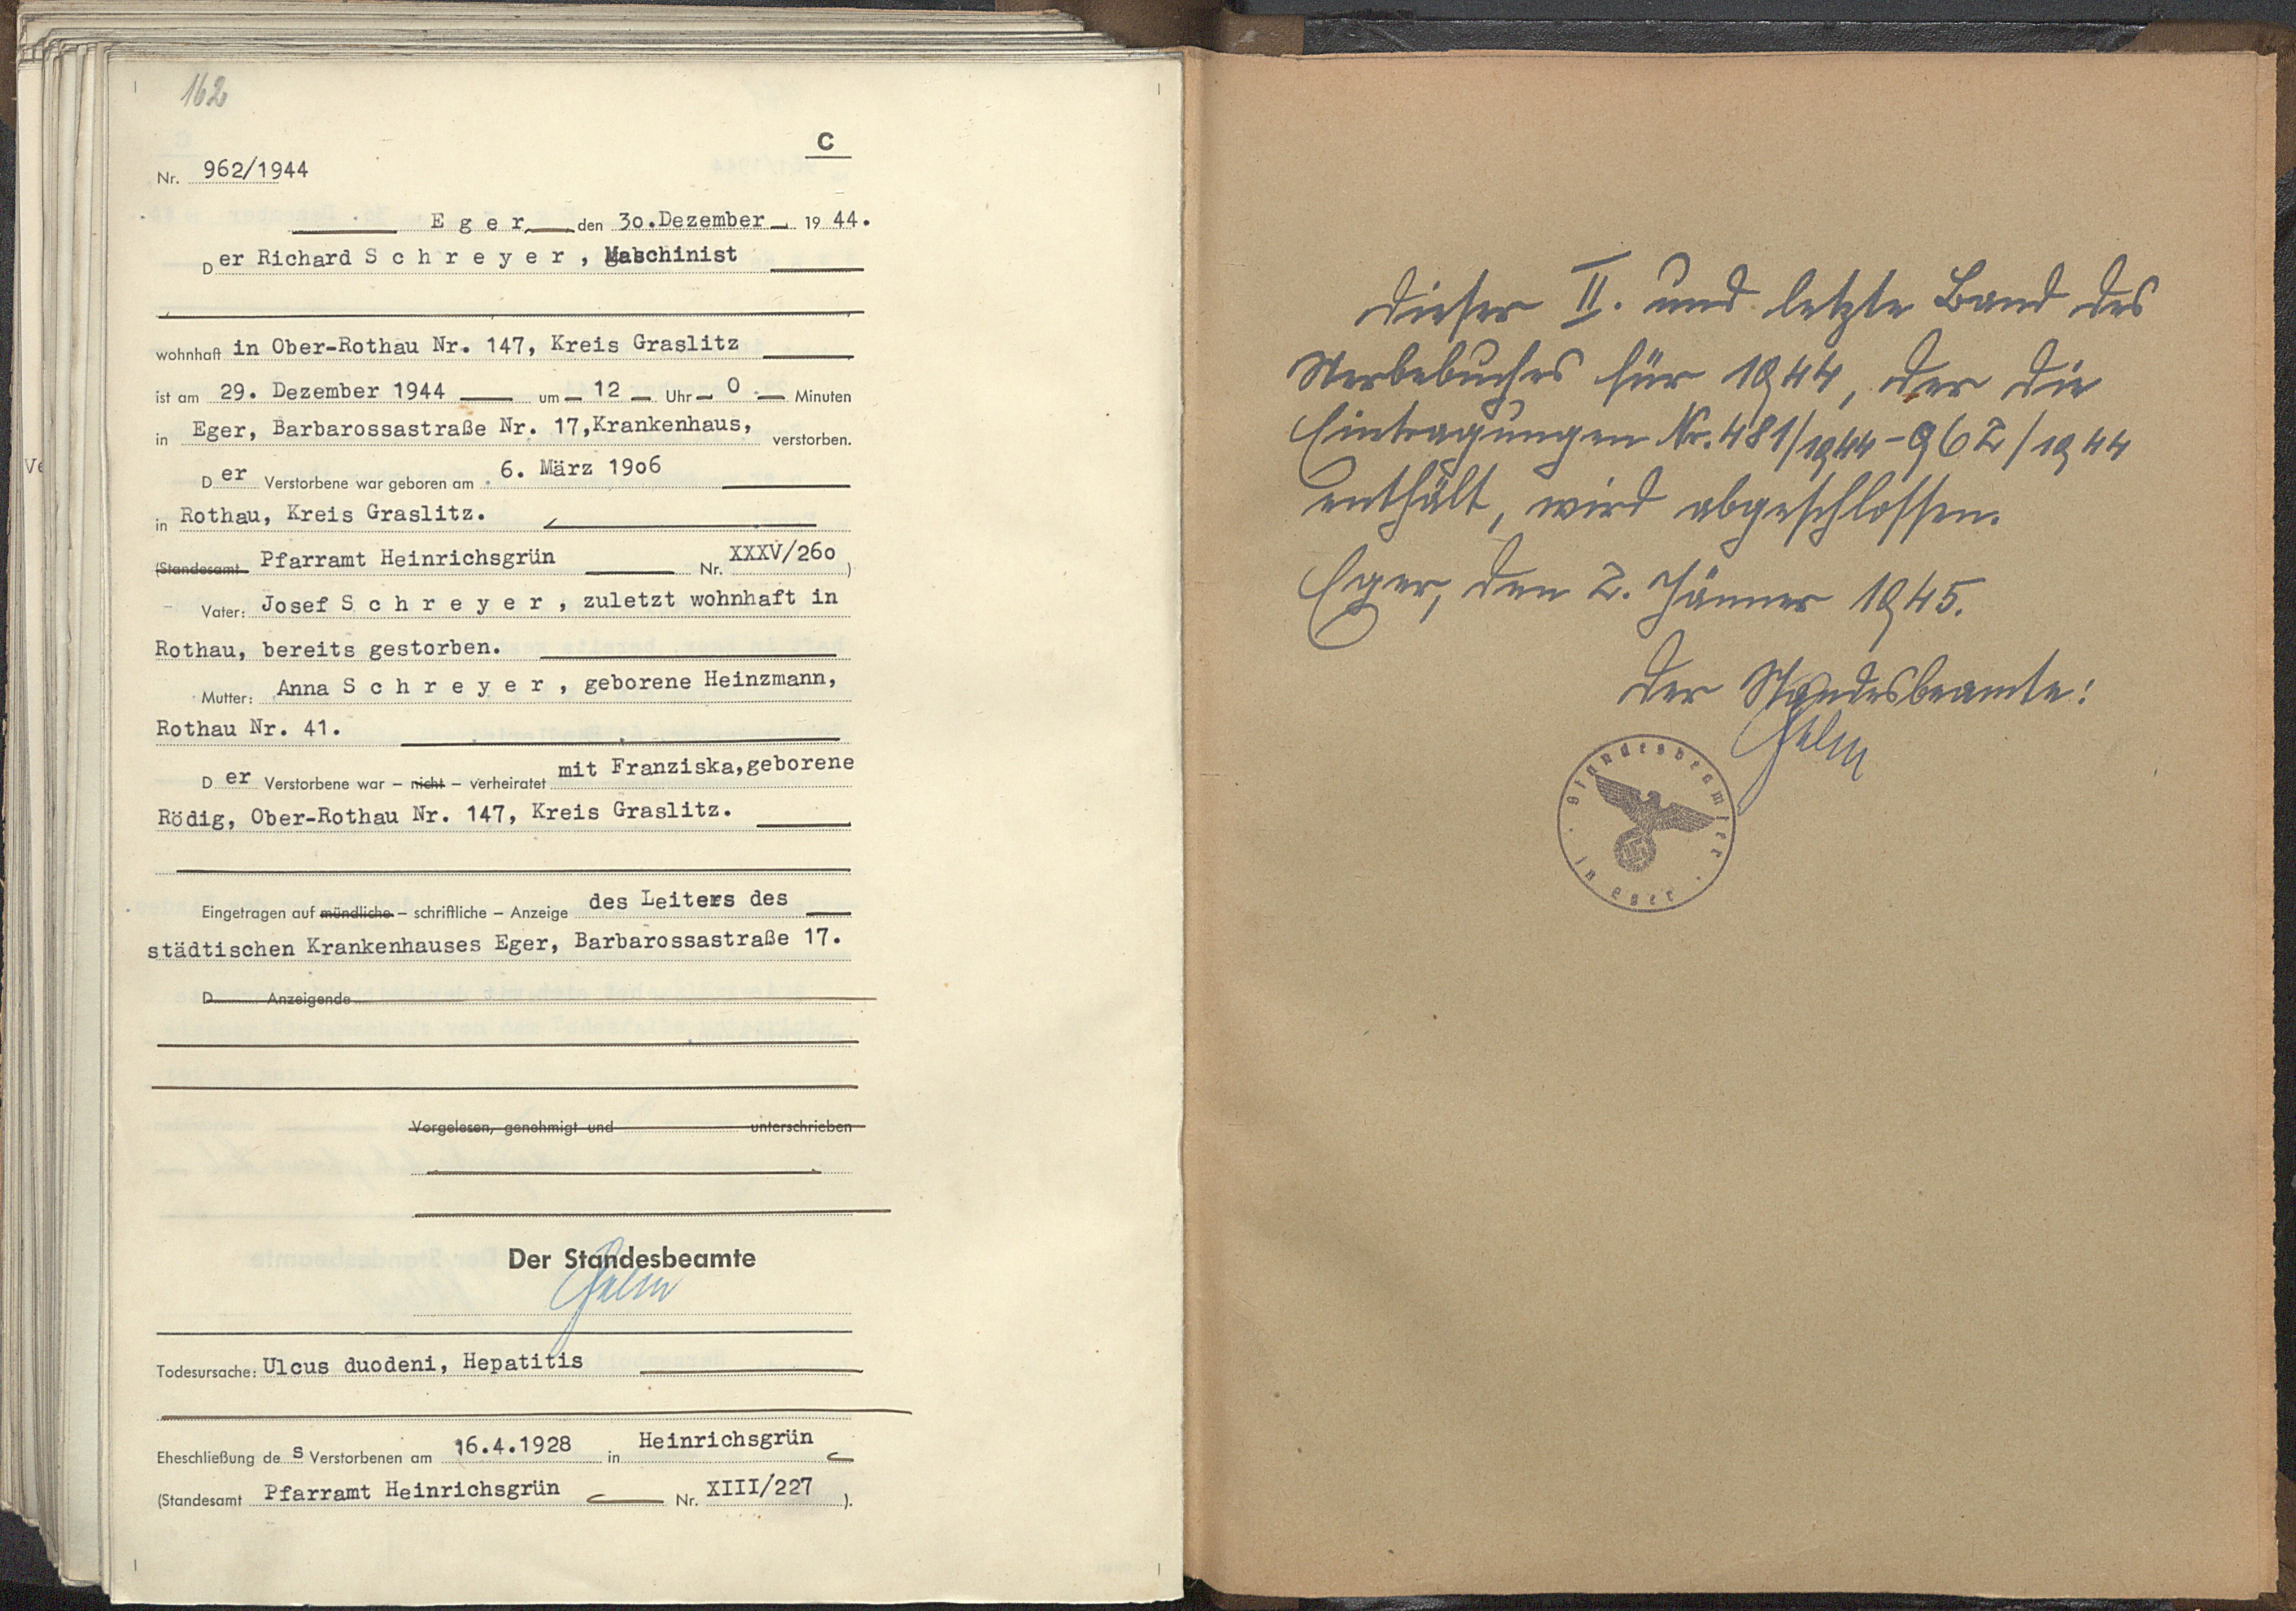 162
C
Nr. 962/1944
E g e r, den 3o.Dezember 19 44.
Der Richard S c h r e y e r , Maschinist
wohnhaft in Ober-Rothau Nr. 147, Kreis Graslitz
ist am 29. Dezember 1944 um 12 Uhr 0 Minuten
in Eger, Barbarossastraße Nr. 17,Krankenhaus, verstorben.
Der Verstorbene war geboren am 6. März 19o6
in Rothau, Kreis Graslitz.
(Standesamt Pfarramt Heinrichsgrün Nr. XXXV/26o )
Vater: Josef S c h r e y e r , zuletzt wohnhaft in
Rothau, bereits gestorben.
Mutter: Anna S c h r e y e r , geborene Heinzmann,
Rothau Nr. 41.
Der Verstorbene war – nicht – verheiratet mit Franziska,geborene
Rödig, Ober-Rothau Nr. 147, Kreis Graslitz.
Eingetragen auf mündliche – schriftliche – Anzeige des Leiters des
städtischen Krankenhauses Eger, Barbarossastraße 17.
D Anzeigende
Vorgelesen, genehmigt und unterschrieben
Der Standesbeamte
Todesursache: Ulcus duodeni, Hepatitis
Eheschließung des Verstorbenen am 16.4.1928 in Heinrichsgrün
(Standesamt Pfarramt Heinrichsgrün Nr. XIII/227 ).
Dieser II. und letzte Band des
Sterbebuches für 1944, der die
Eintragungen Nr. 481/1944-962/1944
enthält, wird abgeschlossen.
Eger, den 2. Jänner 1945.
Der Standesbeamte:
Standesbeamter
in Eger